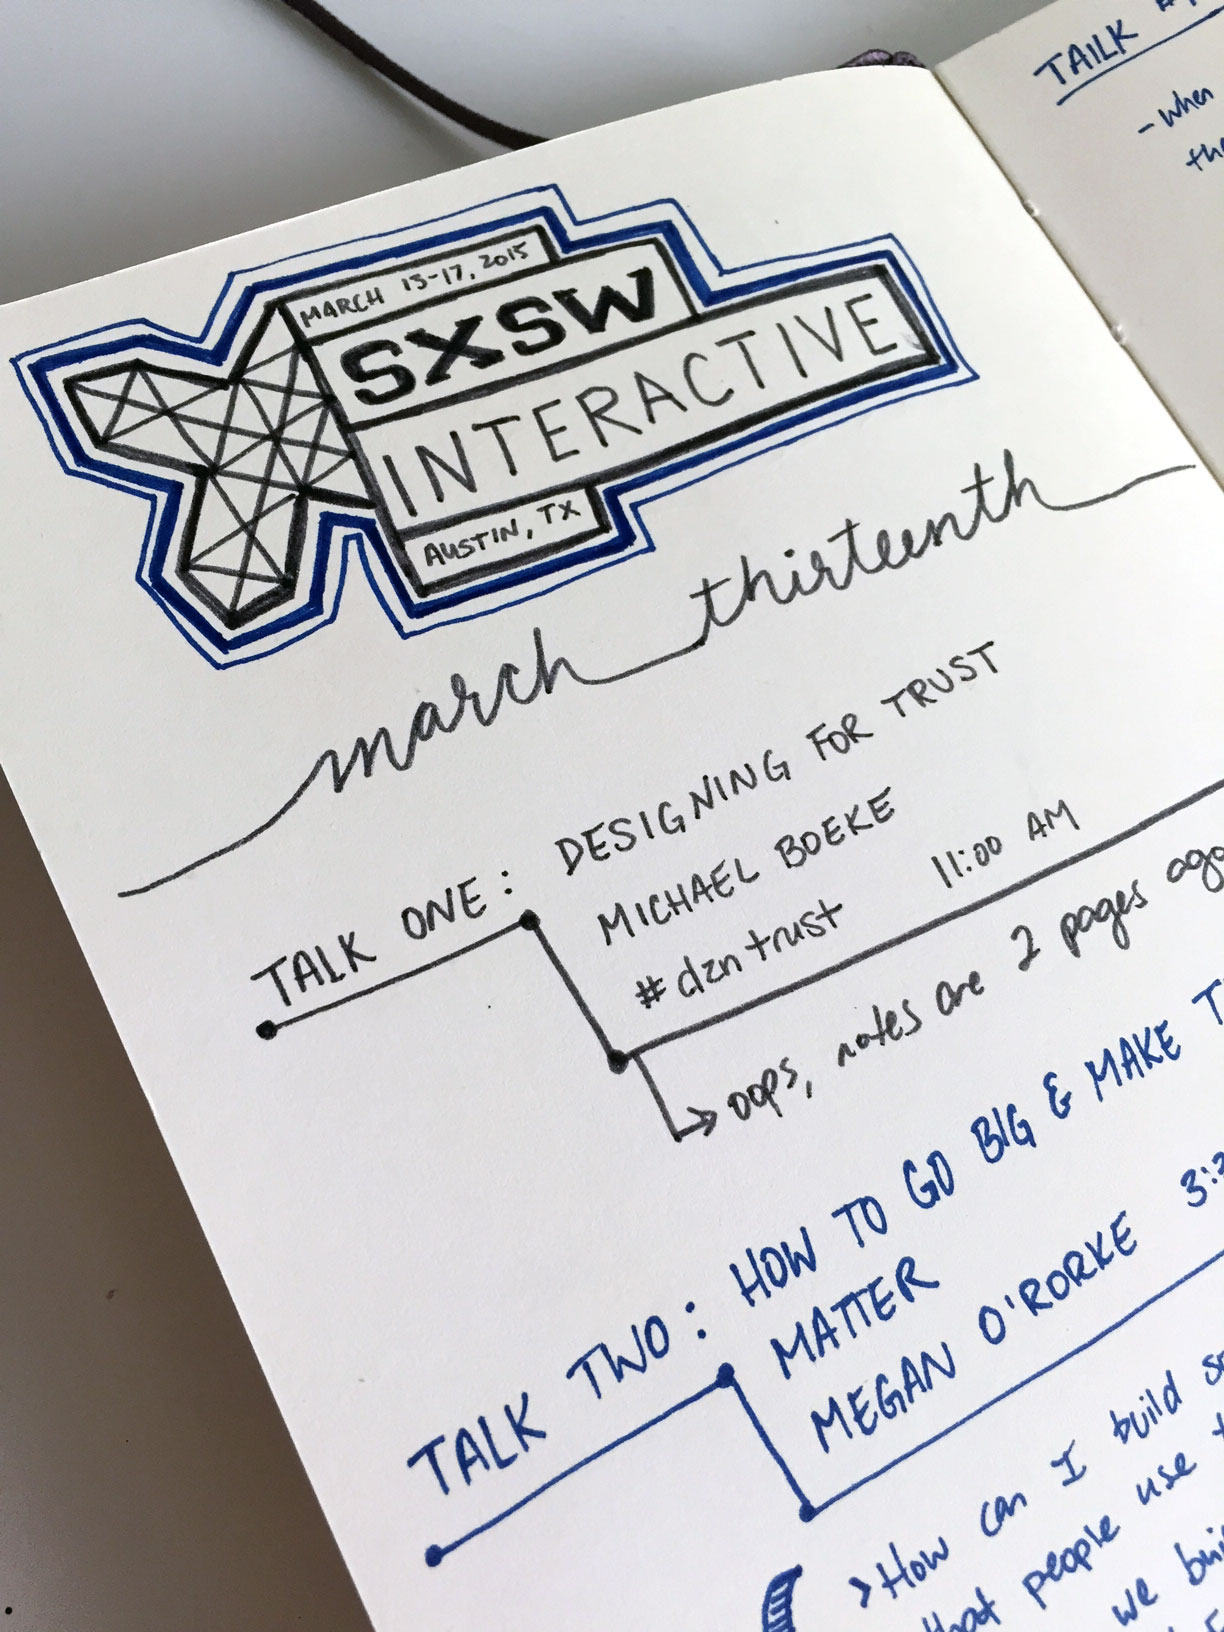 MARCH 13-17, 2015
SXSW
INTERACTIVE
AUSTIN, TX
march thirteenth
TALK ONE: DESIGNING FOR TRUST
MICHAEL BOEKE
#dzntrust 11:00 AM
oops, notes are 2 pages ago
TALK TWO: HOW TO GO BIG & MAKE
MATTER
MEGAN O'RORKE
>How can I build
that people use
we
TALK
-when